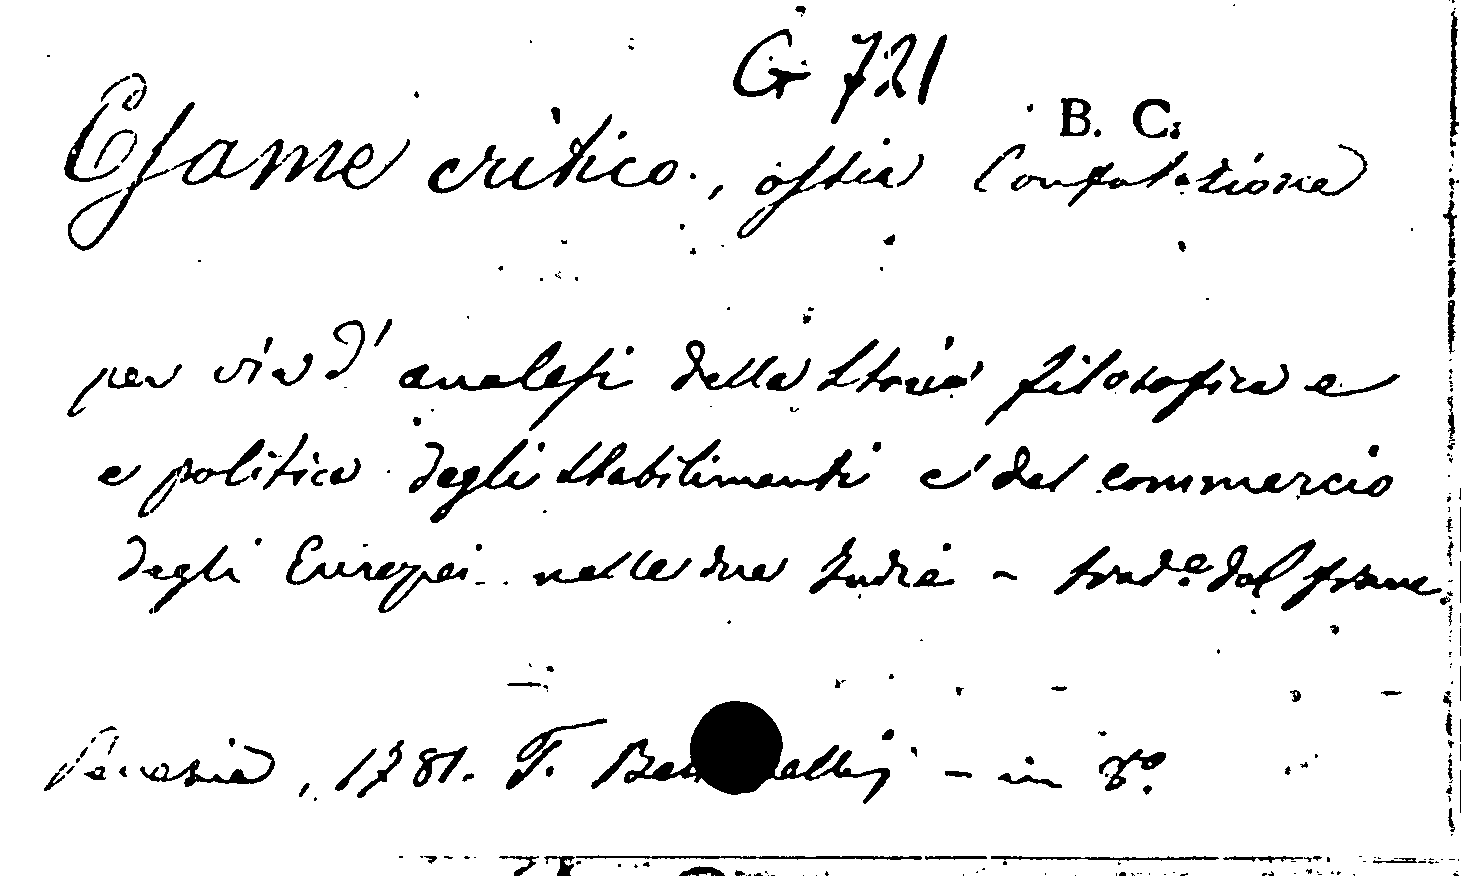 G 721
B. C.
Esame critico, ossia Confutazione
per via d'analesi della Storia filosofica e
e politica degli stabilimenti e del commercio
degli Europei nelle due Indie - trad.e dal franc.
Venezia, 1781. T. Bettinelli - in 8.o